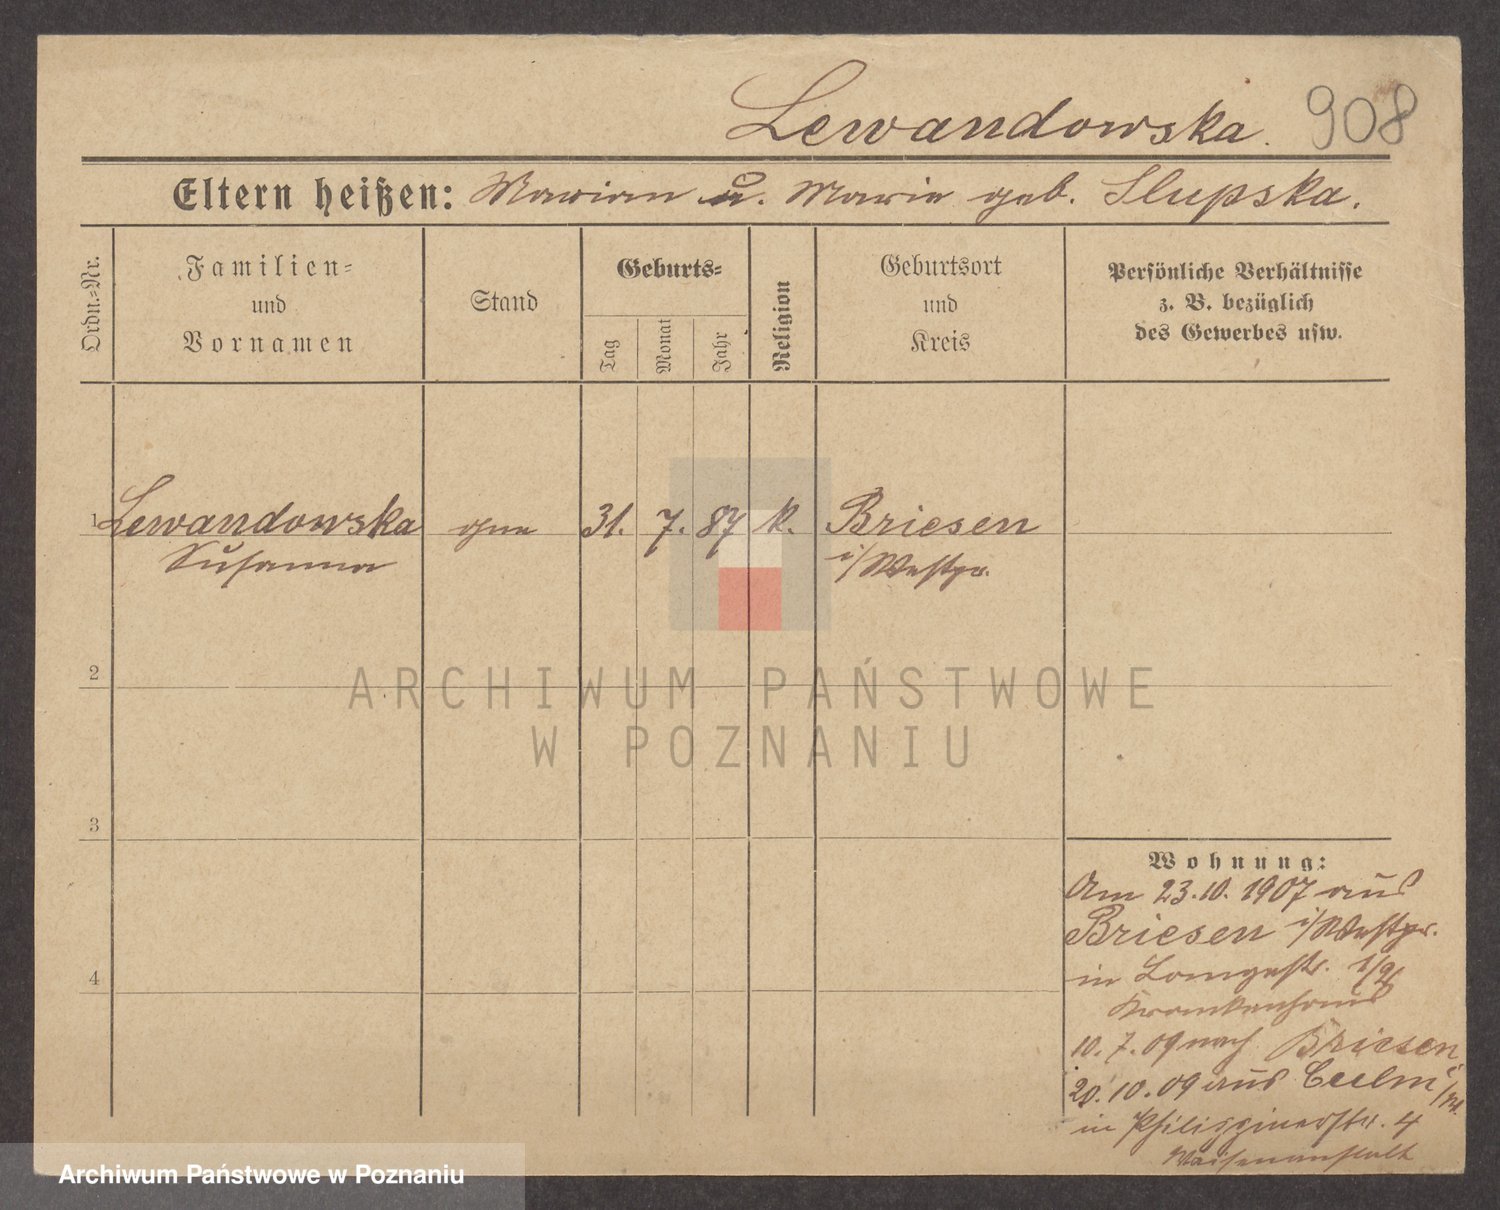 Lewandowska. 908
Eltern heißen: Marian u. Marie geb. Slupska.
Ordn.-Nr.
Familien-
und
Vornamen
Stand
Geburts-
Tag
Monat
Jahr
Religion
Geburtsort
und
Kreis
Persönliche Verhältnisse
z. B. bezüglich
des Gewerbes usw.
1 Lewandowska 31. 7. 87 k. Briesen
Susanna i/Westpr.
2
3
4
Wohnung:
Am 23.10.1907 aus
Briesen i/Westpr.
in Langestr.
Krankenhaus
10.7.09 nach Briesen
20.10.09 aus Culm
in Philippinerstr. 4
Waisenanstalt
ARCHIWUM PAŃSTWOWE
W POZNANIU
Archiwum Państwowe w Poznaniu